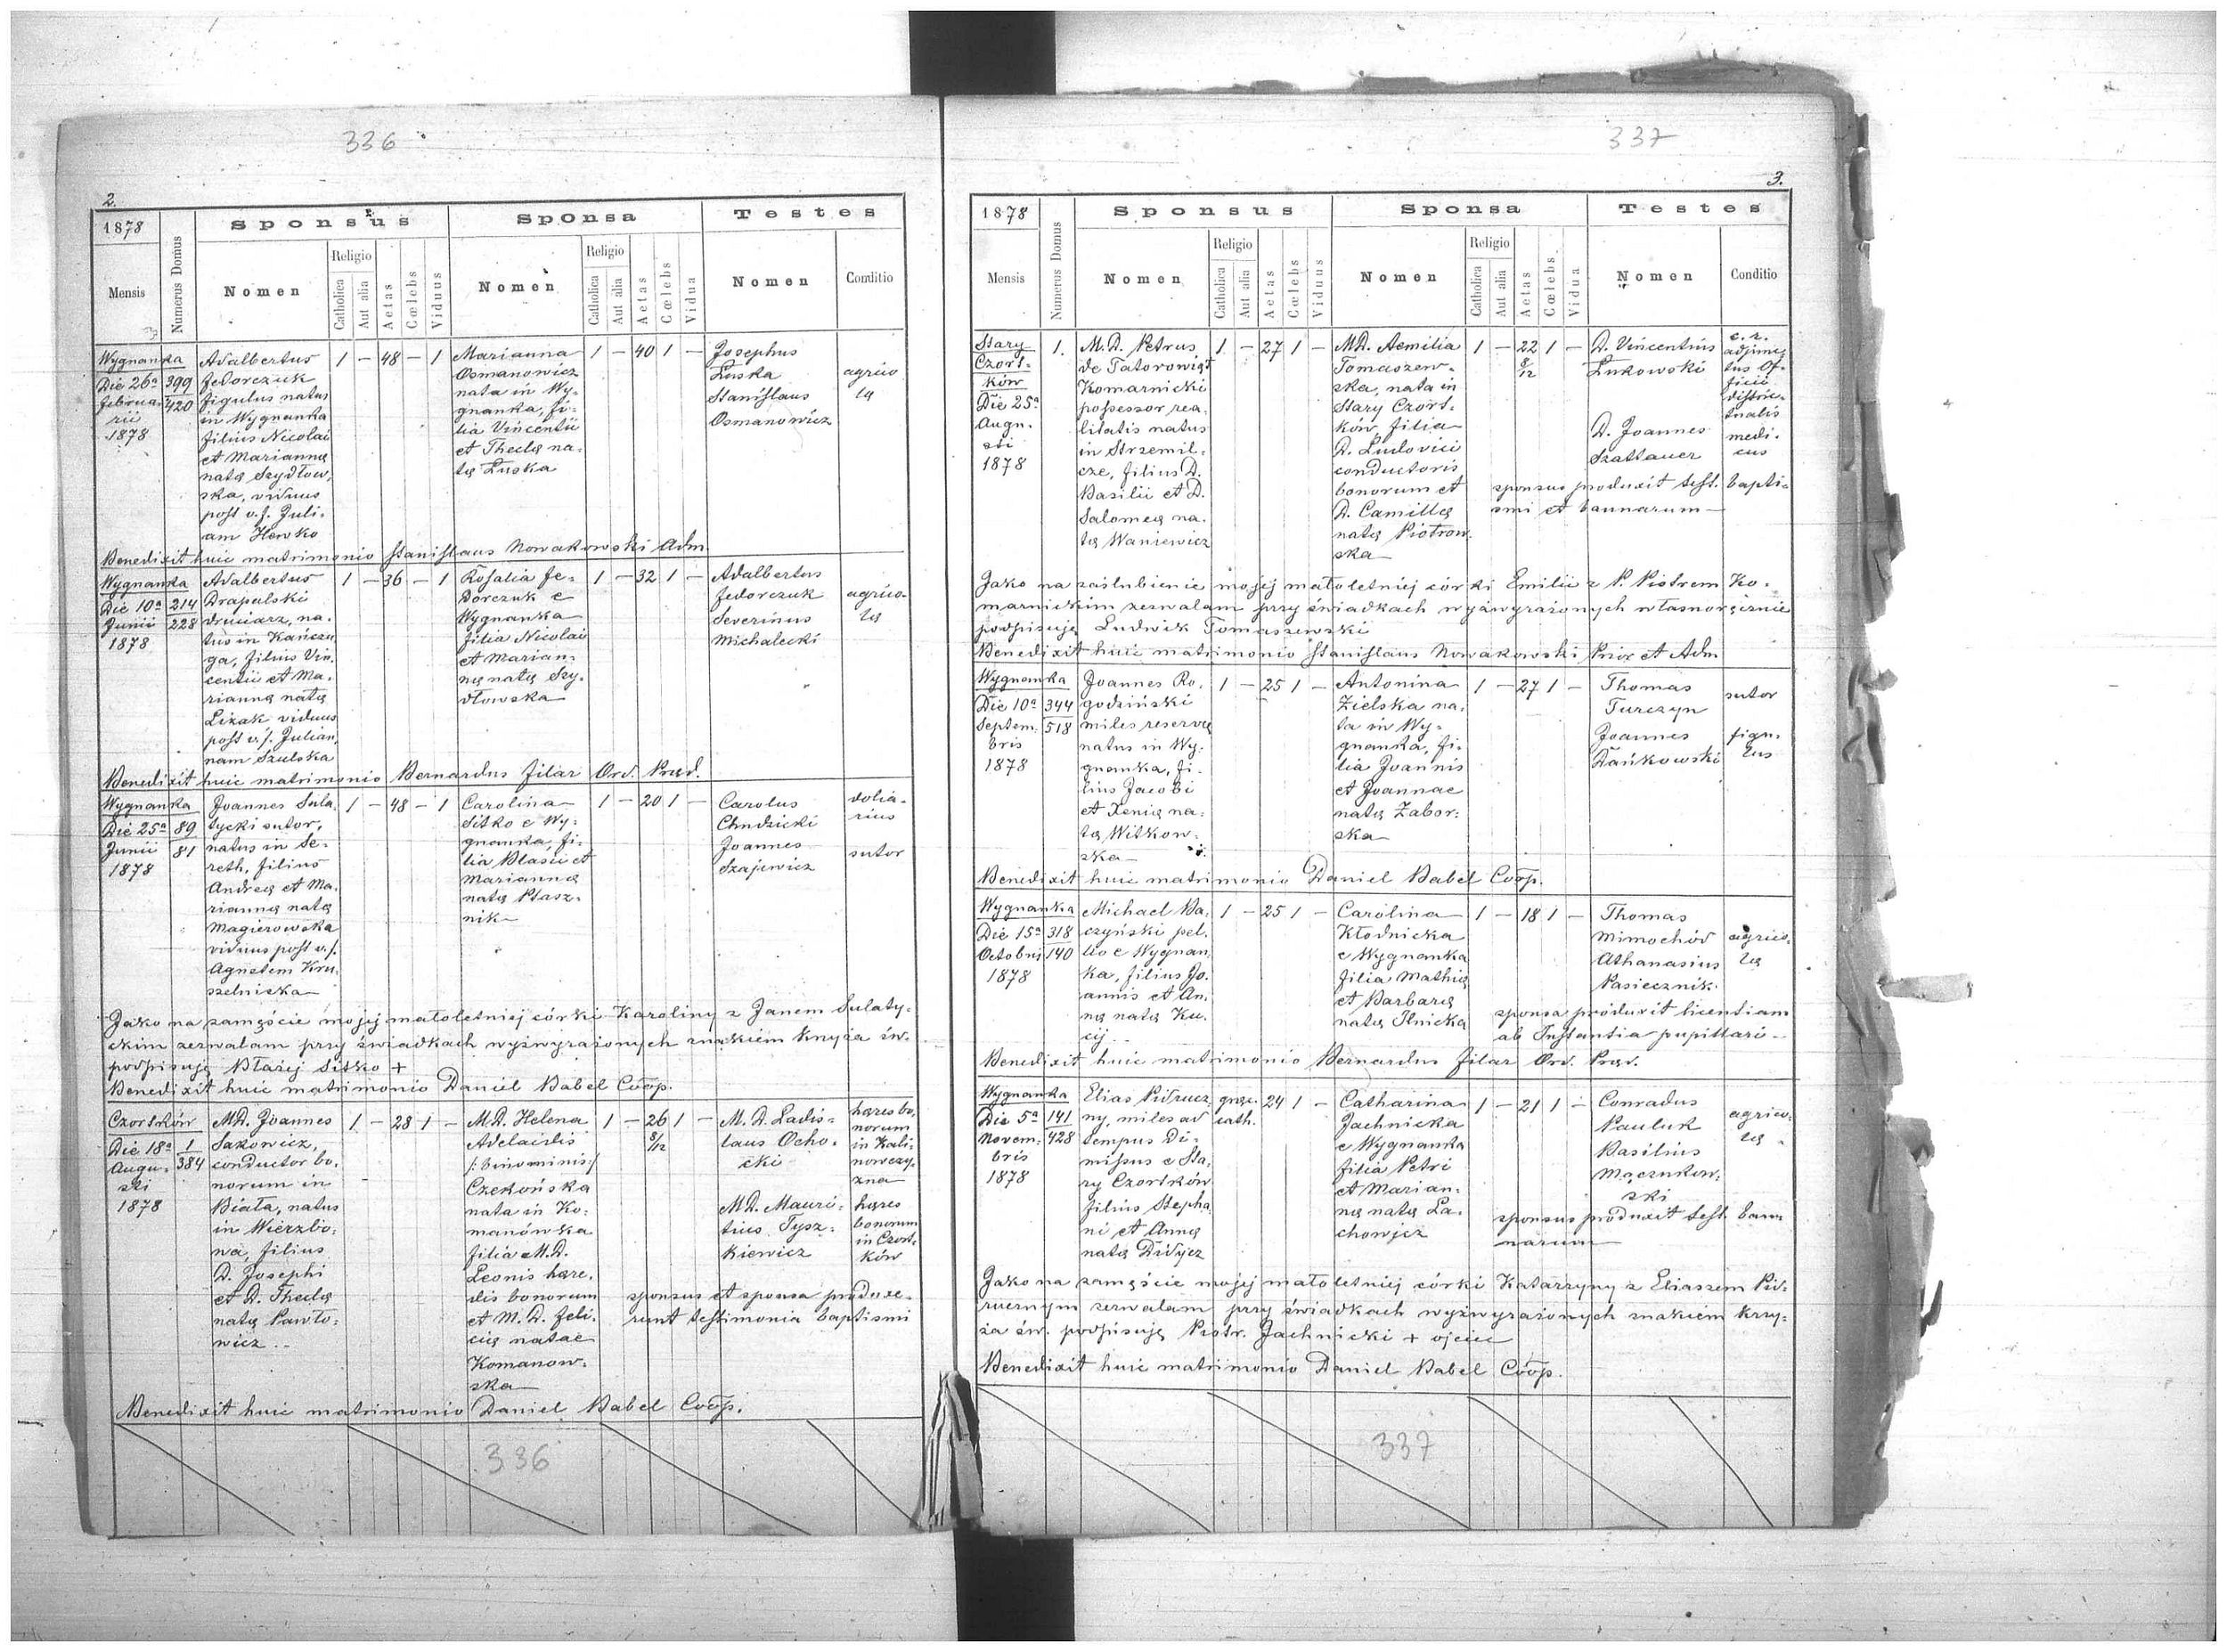 336
2.
1878
Numerus Domus
Sponsus
Sponsa
Testes
Mensis
Nomen
Religio
Catholica
Aut alia
Aetas
Cœlebs
Viduus
Nomen
Religio
Catholica
Aut alia
Aetas
Cœlebs
Vidua
Nomen
Conditio
Wygnanka
Die 26ª
februa-
rii
1878
399
420
Adalbertus
fedorczuk
figulus natus
in Wygnanka
filius Nicolai
et Marianną
natą Szydłow-
ska, viduus
post v.f. Juli-
am Hewko
1 - 48 - 1
Marianna
Osmanowicz
nata in Wy-
gnanka, fi-
lia Vincentii
et Theclą na-
tą Łuska
1 - 40 1 -
Josephus
Łuska
Stanislaus
Osmanowicz
agrico
lą
Benedixit huic matrimonio Stanislaus Nowakowski Adm.
Wygnanka
Die 10ª
Junii
1878
214
228
Adalbertus
Drapalski
druciarz, na-
tus in Kańczu
ga, filius Vin-
centii et Ma-
rianną natą
Lizak viduus
post v.f. Julian-
nam Szulska
1 - 36 - 1
Rosalia fe-
dorczuk e
Wygnanka
filia Nicolai
et Marian-
ną natą Szy-
dłowska
1 - 32 1 -
Adalbertus
fedorczuk
Severinus
Michalecki
agrico-
lą
Benedixit huic matrimonio Bernardus filar Ord. Præd.
Wygnanka
Die 25ª
Junii
1878
89
81
Joannes Sula-
tycki sutor,
natus in Se-
reth, filius
Andreą et Ma-
rianną natą
Magierowska
viduus post v.f.
Agnetem Kru-
szelnicka
1 - 48 - 1
Carolina
Sitko e Wy-
gnanka, fi-
lia Blasii et
Marianną
natą Ptasz-
nik
1 - 20 1 -
Carolus
Chudzicki
Joannes
Szajewicz
dolia-
rius
sutor
Jako na zamęście mojej małoletniej córki Karoliny z Janem Sulaty-
ckim zezwalam przy świadkach wyżwyrażonych znakiem krzyża św.
podpisuję Błażej Sitko +
Benedixit huic matrimonio Daniel Babel Coop.
Czortków
Die 18ª
Augu-
sti
1878
1
384
MD. Joannes
Sakowicz,
conductor bo-
norum in
Biała, natus
in Wierzbo-
wa, filius
D. Josephi
et D. Theclą
natą Pawło-
wicz
1 - 28 1 -
M.D. Helena
Adelaidis
/:binominis:/
Czekońska
nata in Ko-
manówka
filia M.D.
Leonis hære-
dis bonorum
et M.D. feli-
cią natae
Komanow-
ska
1 - 26 1 -
8/12
M.D. Ladis-
laus Ocho-
cki
hæres bo-
norum
in Kali-
nowczy-
zna
MD. Mauri-
tius Tysz-
kiewicz
hæres
bonorum
in Czort-
ków
sponsus et sponsa produxe-
runt testimonia baptismi
Benedixit huic matrimonio Daniel Babel Coop.
336
337
3.
1878
Numerus Domus
Sponsus
Sponsa
Testes
Mensis
Nomen
Religio
Catholica
Aut alia
Aetas
Cœlebs
Viduus
Nomen
Religio
Catholica
Aut alia
Aetas
Cœlebs.
Vidua
Nomen
Conditio
Stary
Czort-
ków
Die 25ª
Augu-
sti
1878
1.
M.D. Petrus
de Tatorowięt
Komarnicki
possessor rea-
litatis natus
in Strzemil-
cze, filius D.
Basilii et D.
Salomeą na-
tą Waniewicz
1 - 27 1 -
MD. Aemilia
Tomaszew-
ska, nata in
Stary Czort-
ków filia
D. Ludovici
conductoris
bonorum et
D. Camillą
natą Piotrow-
ska
1 - 22 1 -
8/12
D. Vincentius
Łukowski
c.r.
adjunc-
tus Of-
ficii
distric-
tualis
D. Joannes
Szattauer
medi-
cus
sponsus produxit test. bapti-
smi et bannorum
Jako na zaślubienie mojej małoletniej córki Emilii z P. Piotrem Ko-
marnickim zezwalam przy świadkach wyżwyrażonych własnoręcznie
podpisuję Ludwik Tomaszewski
Benedixit huic matrimonio Stanislaus Nowakowski Prior et Adm
Wygnanka
Die 10ª
Septem-
bris
1878
344
518
Joannes Ro-
godziński
miles reservą
natus in Wy-
gnanka, fi-
lius Jacobi
et Xenią na-
tą Witkow-
ska
1 - 25 1 -
Antonina
Zielska na-
ta in Wy-
gnanka, fi-
lia Joannis
et Joannae
natą Zabor-
ska
1 - 27 1 -
Thomas
Turczyn
Joannes
Dańkowski
sutor
figu-
lus
Benedixit huic matrimonio Daniel Babel Coop.
Wygnanka
Die 15ª
Octobris
1878
318
140
Michael Ba-
czyński pel-
lio e Wygnan-
ka, filius Jo-
annis et An-
ną natą Ku-
cij
1 - 25 1 -
Carolina
Kłodnicka
e Wygnanka
filia Mathią
et Barbarą
natą Ilnicka
1 - 18 1 -
Thomas
Mimochód
Athanasius
Pasiecznik
agrico-
lą
sponsa produxit licentiam
ab Instantia pupillari
Benedixit huic matrimonio Bernardus filar Ord. Præd.
Wygnanka
Die 5ª
Novem-
bris
1878
141
428
Elias Pidrucz-
ny, miles ad
tempus di-
missus e Sta-
ry Czortków
filius Stepha-
ni et Anną
natą Didycz
græc.
cath.
24 1 -
Catharina
Jachnicka
e Wygnanka
filia Petri
et Marian-
ną natą La-
chowicz
1 - 21 1 -
Conradus
Pauluk
Basilius
Mączukow-
ski
agrico-
lą
sponsus produxit test. ban-
norum
Jako na zamęście mojej małoletniej córki Katarzyny z Eliaszem Pid-
rucznym zezwalam przy świadkach wyżwyrażonych znakiem krzy-
ża św. podpisuję Piotr Jachnicki + ojciec
Benedixit huic matrimonio Daniel Babel Coop.
337